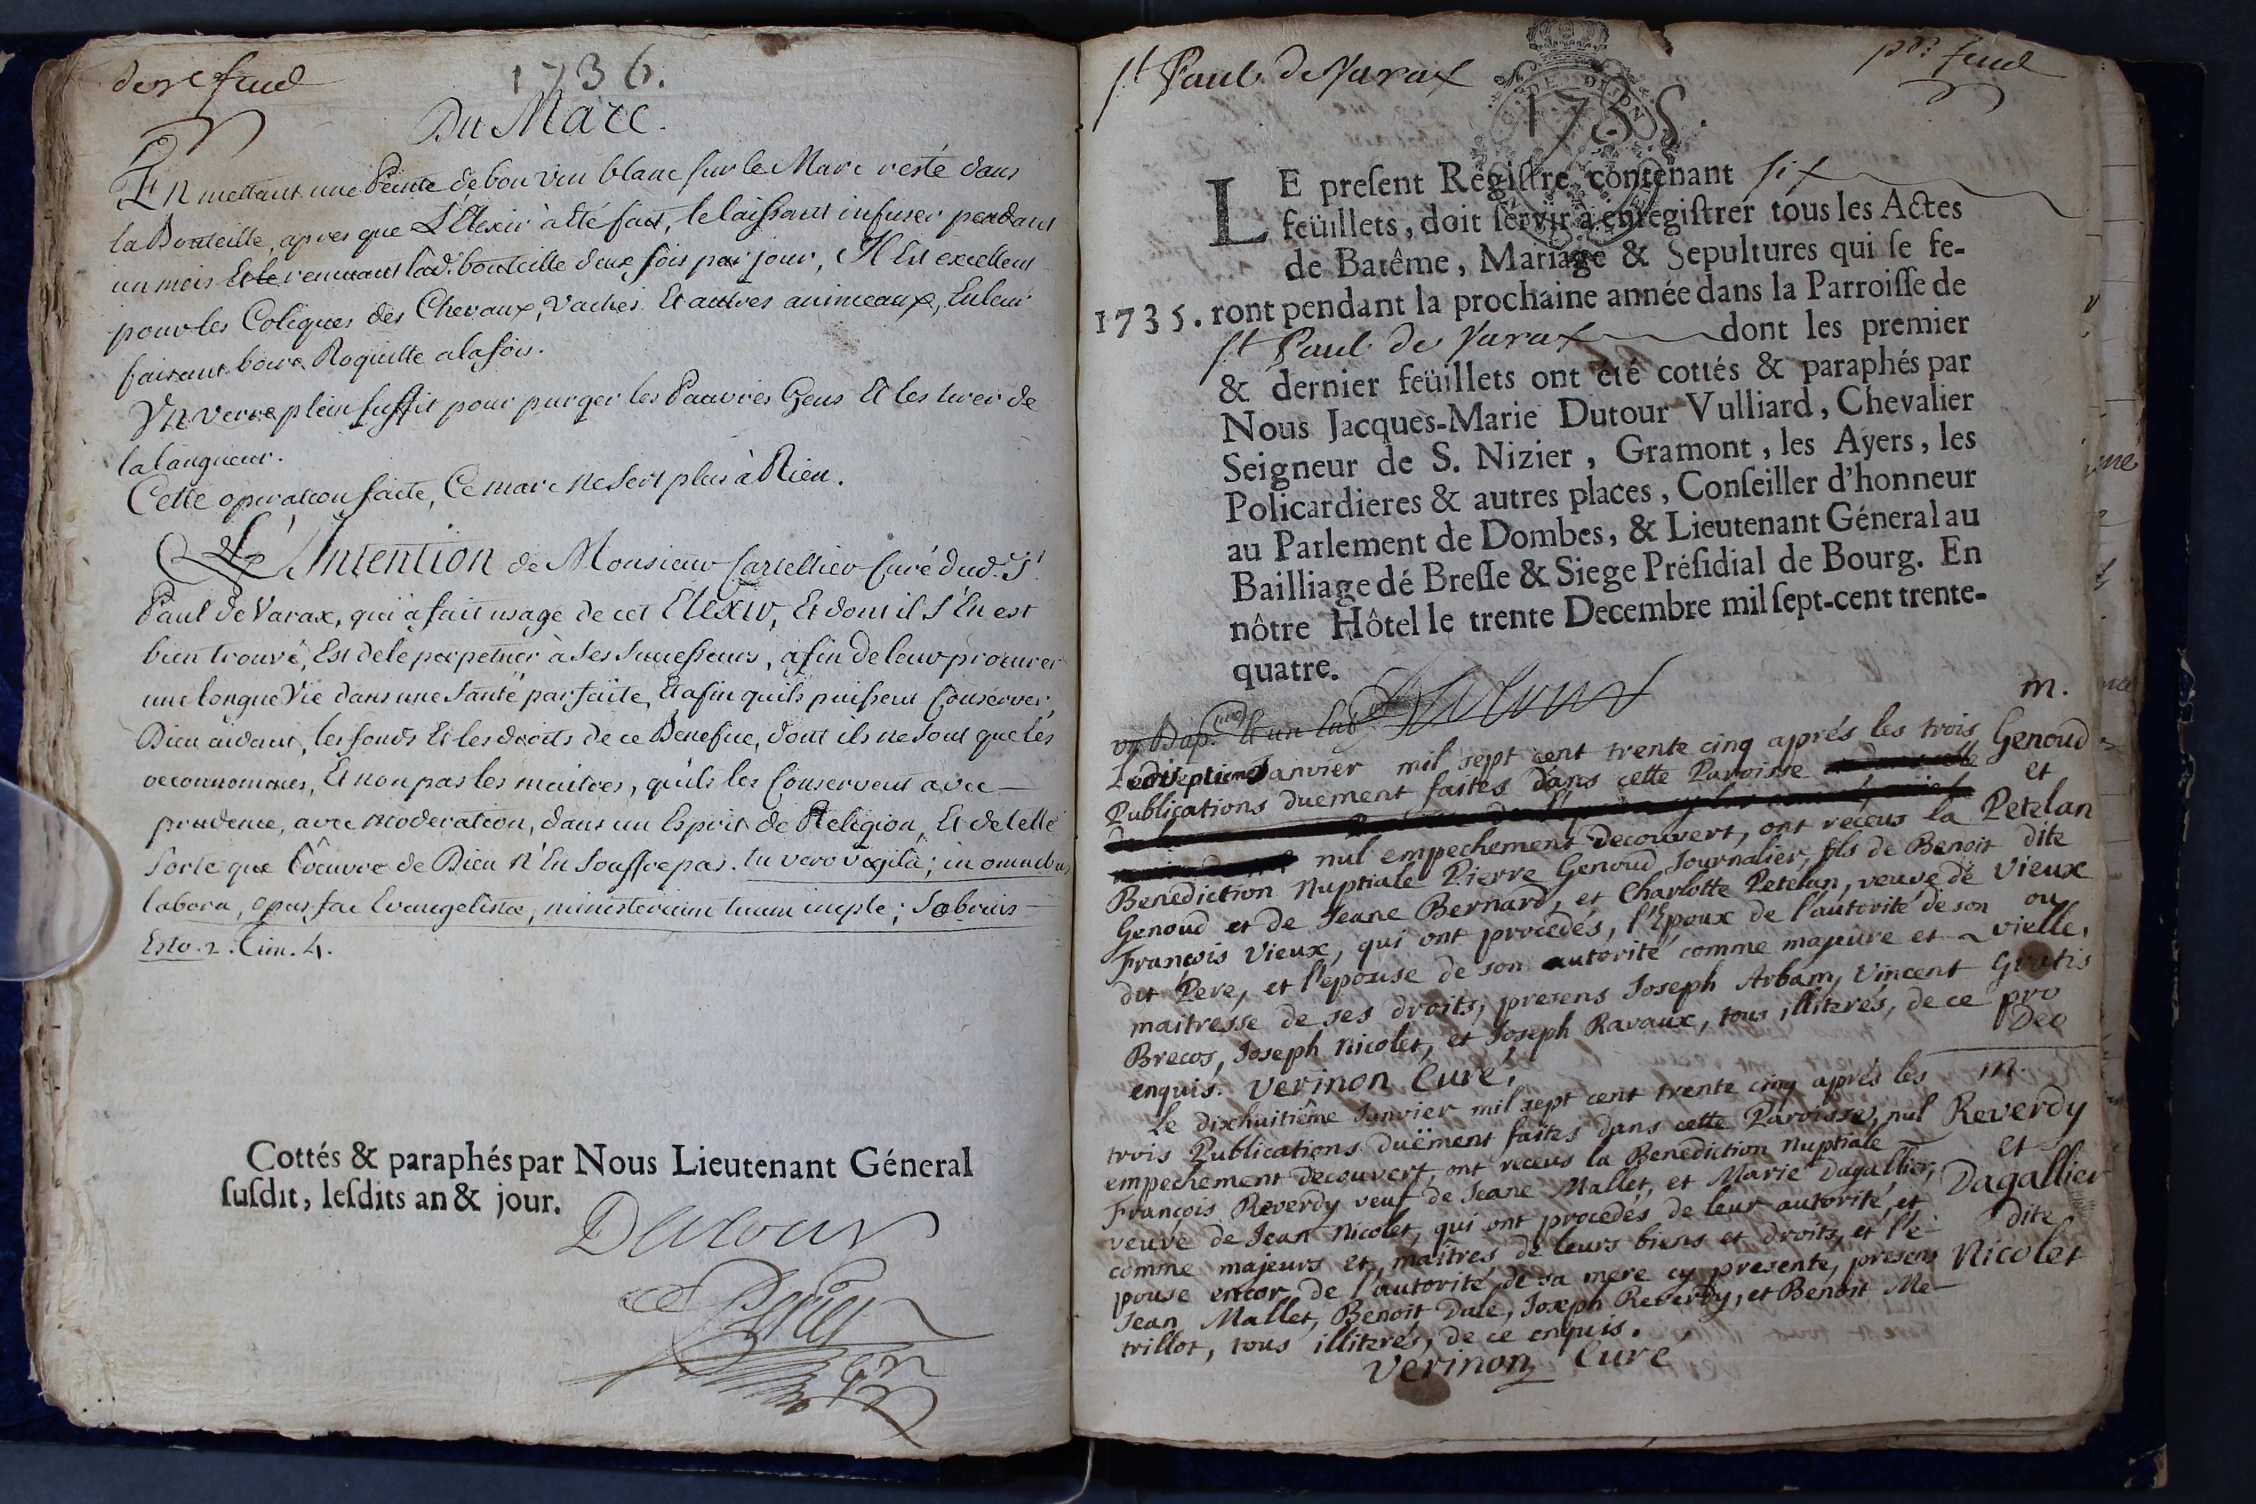 1736.
Du Marc.
En mettant une Peinte de bon vin blanc sur le Marc resté dans
la Bouteille, apres que L'Elexir à été fait, le laissant infuser pendant
un mois Et le remuant lad. bouteille deux fois par jour, Il Est excellent
pour les Coliques des Chevaux, Vaches Et autres animeaux, En leur
faisant boire Roquille a la fois.
Un verre plein suffit pour purger les Pauvres Gens Et les tirer de
la langueur.
Cette operation faite, Ce marc ne sert plus à Rien.
L'Intention de Monsieur Cartellier Curé dud. St
Paul de Varax, qui a fait usage de cet Elexir, Et dont il s'En est
bien trouvé, Est de le perpetuer à Ses Successeurs, afin de leur procurer
une longue Vie dans une Santé parfaite, Et afin quils puissent Conserver,
Dieu aidant, les fonds Et les droits de ce Benefice, dont ils ne sont que les
oeconnomes, Et non pas les maitres, quils les Conservent avec
prudence, avec moderation, dans un Esprit de Religion, Et de telle
Sorte que l'oeuvre de Dieu n'En souffre pas. tu vero vigila; in omnibus
labora, opus fac Evangelistæ, ministerium tuum imple; Sobrius
Esto. 2. Tim. 4.
Cottés & paraphés par Nous Lieutenant Géneral
susdit, lesdits an & jour.
Dutour
St Paul de Varax
1735.
LE present Registre contenant six
feüillets, doit servir à enregistrer tous les Actes
de Batême, Mariage & Sepultures qui se fe-
1735. ront pendant la prochaine année dans la Parroisse de
St Paul de Varax dont les premier
& dernier feüillets ont été cottés & paraphés par
Nous Jacques-Marie Dutour Vulliard, Chevalier
Seigneur de S. Nizier, Gramont, les Ayers, les
Policardieres & autres places, Conseiller d'honneur
au Parlement de Dombes, & Lieutenant Géneral au
Bailliage dé Bresse & Siege Présidial de Bourg. En
nôtre Hôtel le trente Decembre mil sept-cent trente-
quatre.
Dutour
m.
Genoud
et
Petelan
dite
Vieux
ou
vielle.
Gratis
pro
Deo
Janvier mil sept cent trente cinq aprés les trois
Publications duement faites dans cette Paroisse
nul empechement decouvert, ont receus la
Benediction Nuptiale Pierre Genoud Journalier, fils de Benoit
Genoud et de Jeane Bernard, et Charlotte Petelan, veuve de
François Vieux, qui ont procedés, l'Epoux de l'autorité de son
dit Pere, et l'epouse de son autorité comme majeure et
maitresse de ses droits, presens Joseph Arbany, Vincent
Brecos, Joseph Nicolet, et Joseph Ravaux, tous illiterés, de ce
enquis. Verinon Curé,
m.
Reverdy
et
Dagallier
dite
Nicolet
Le dixhuitiême Janvier mil sept cent trente cinq aprés les
trois Publications duëment faites dans cette Paroisse, nul
empechement decouvert, ont receus la Benediction Nuptiale
François Reverdy veuf de Jeane Mallet, et Marie Dagallier,
veuve de Jean Nicolet, qui ont procedés de leur autorité, et
comme majeurs et maîtres de leurs biens et droits, et l'é-
pouse encor de l'autorité de sa mere cy presente, presens
Jean Mallet, Benoit Dale, Joseph Reverdy, et Benoit Me-
trillot, tous illiterés, de ce enquis.
Verinon Curé